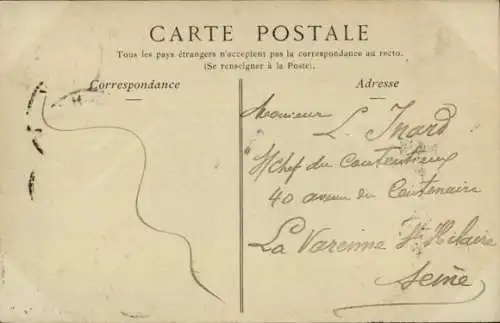 CARTE POSTALE
Tous les pays étrangers n'acceptent pas la correspondance au recto.
(Se renseigner à la Poste).
Correspondance
Adresse
Monsieur
L. Inard
s/Chef du Contentieux
40 avenue du Centenaire
La Varenne St Hilaire
Seine